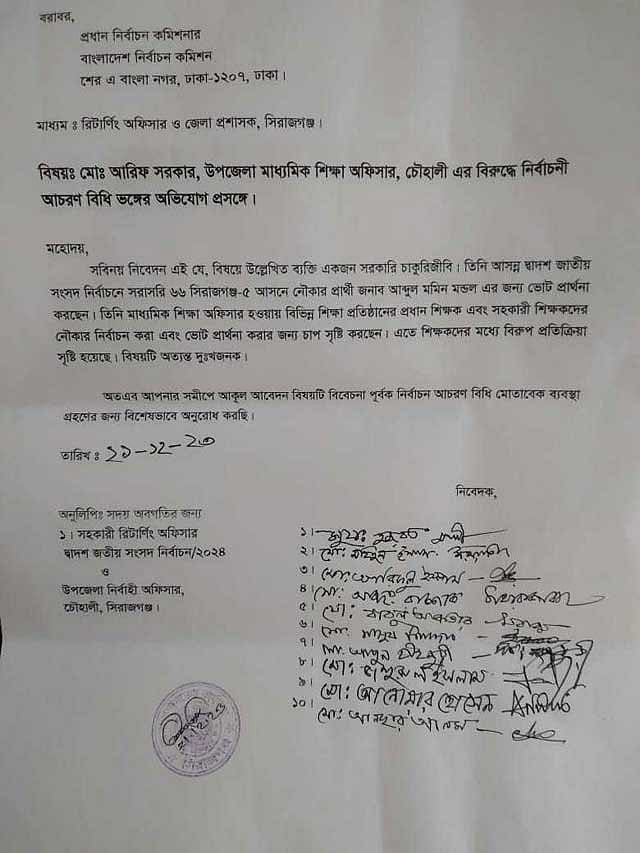 বরাবর,
প্রধান নির্বাচন কমিশনার
বাংলাদেশ নির্বাচন কমিশন
শের এ বাংলা নগর, ঢাকা-১২০৭, ঢাকা।
মাধ্যম ঃ রিটার্ণিং অফিসার ও জেলা প্রশাসক, সিরাজগঞ্জ।
বিষয়ঃ মোঃ আরিফ সরকার, উপজেলা মাধ্যমিক শিক্ষা অফিসার, চৌহালী এর বিরুদ্ধে নির্বাচনী
আচরণ বিধি ভঙ্গের অভিযোগ প্রসঙ্গে।
মহোদয়,
সবিনয় নিবেদন এই যে, বিষয়ে উল্লেখিত ব্যক্তি একজন সরকারি চাকুরিজীবি। তিনি আসন্ন দ্বাদশ জাতীয়
সংসদ নির্বাচনে সরাসরি ৬৬ সিরাজগঞ্জ-৫ আসনে নৌকার প্রার্থী জনাব আব্দুল মমিন মন্ডল এর জন্য ভোট প্রার্থনা
করছেন। তিনি মাধ্যমিক শিক্ষা অফিসার হওয়ায় বিভিন্ন শিক্ষা প্রতিষ্ঠানের প্রধান শিক্ষক এবং সহকারী শিক্ষকদের
নৌকার নির্বাচন করা এবং ভোট প্রার্থনা করার জন্য চাপ সৃষ্টি করছেন। এতে শিক্ষকদের মধ্যে বিরুপ প্রতিক্রিয়া
সৃষ্টি হয়েছে। বিষয়টি অত্যন্ত দুঃখজনক।
অতএব আপনার সমীপে আকুল আবেদন বিষয়টি বিবেচনা পূর্বক নির্বাচন আচরণ বিধি মোতাবেক ব্যবস্থা
গ্রহণের জন্য বিশেষভাবে অনুরোধ করছি।
তারিখ ঃ ২১-১২-২৩
নিবেদক,
অনুলিপিঃ সদয় অবগতির জন্য
১। সহকারী রিটার্ণিং অফিসার
দ্বাদশ জাতীয় সংসদ নির্বাচন/২০২৪
ও
উপজেলা নির্বাহী অফিসার,
চৌহালী, সিরাজগঞ্জ।
১।
২। মোঃ
৩। মোঃ
৪। মোঃ
৫। মোঃ
৬। মোঃ
৭।
৮। মোঃ
৯। মোঃ আনোয়ার হোসেন
১০। মোঃ
21/12/23
সিরাজগঞ্জ